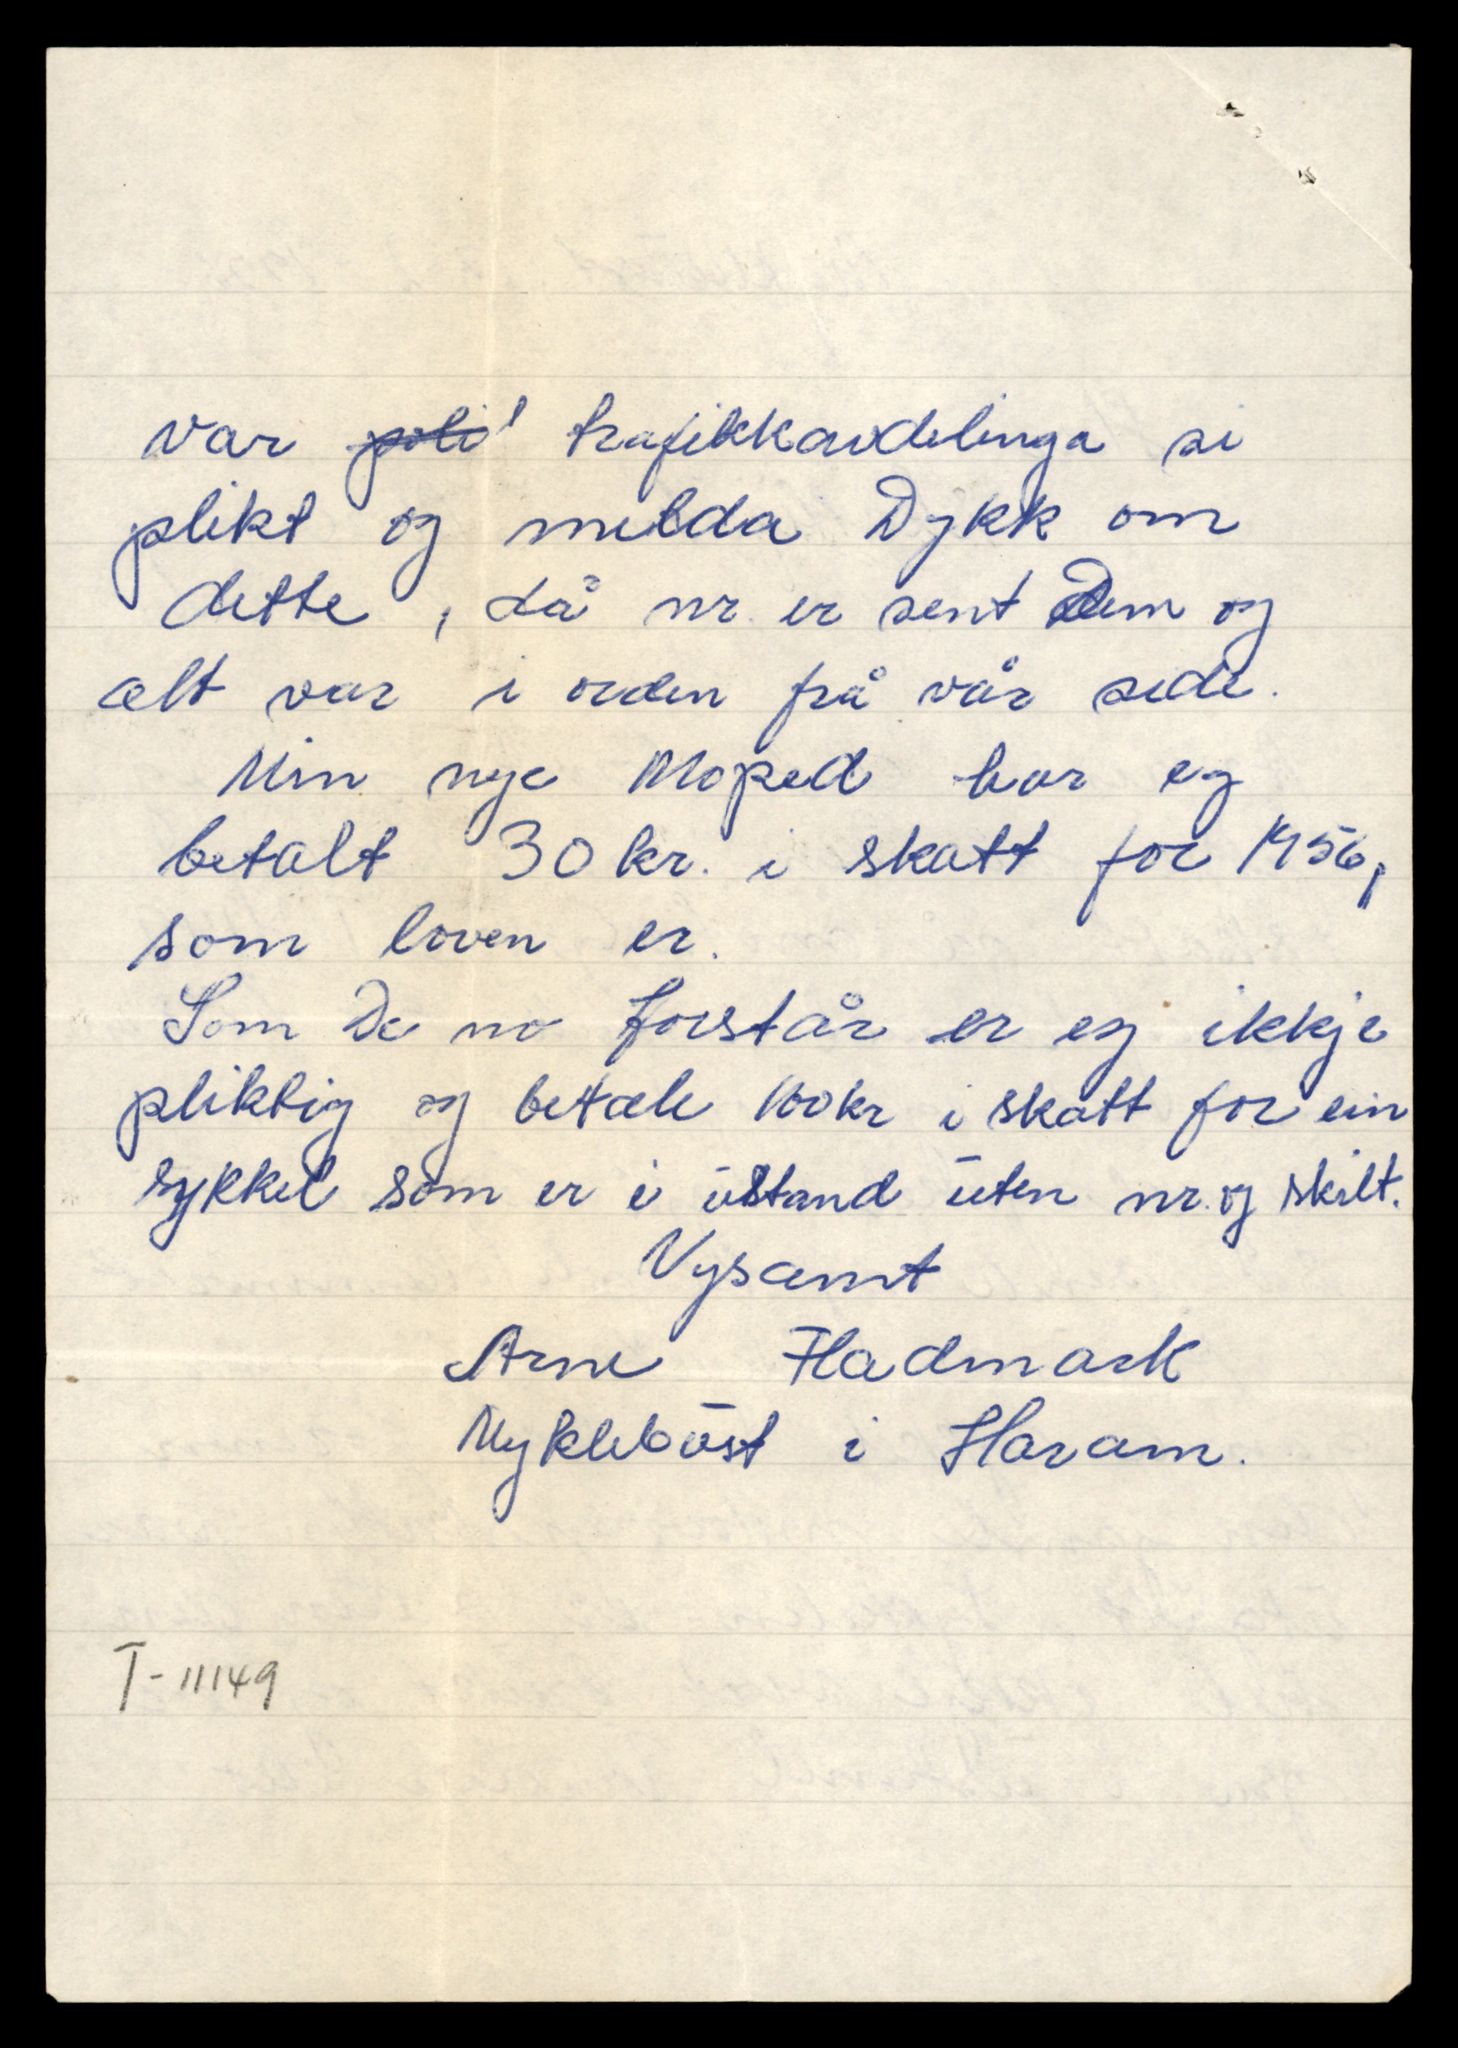 var poli trafikkavdelinga si
plikt og melda Dykk om
dette, då nr. er sent Dem og
alt var i orden frå vår side.
Min nye Moped har eg
betalt 30 kr. i skatt for 1956,
som loven er.
Som De no forstår er eg ikkje
pliktig og betale 100 kr i skatt for ein
sykkel som er i ustand uten nr. og skilt.
Vysamt
Arne Fladmark
Myklebust i Haram.
T-11149